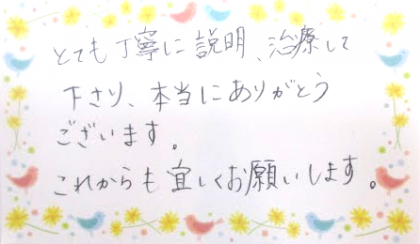 とても丁寧に説明、治療して
下さり、本当にありがとう
ございます。
これからも宜しくお願いします。